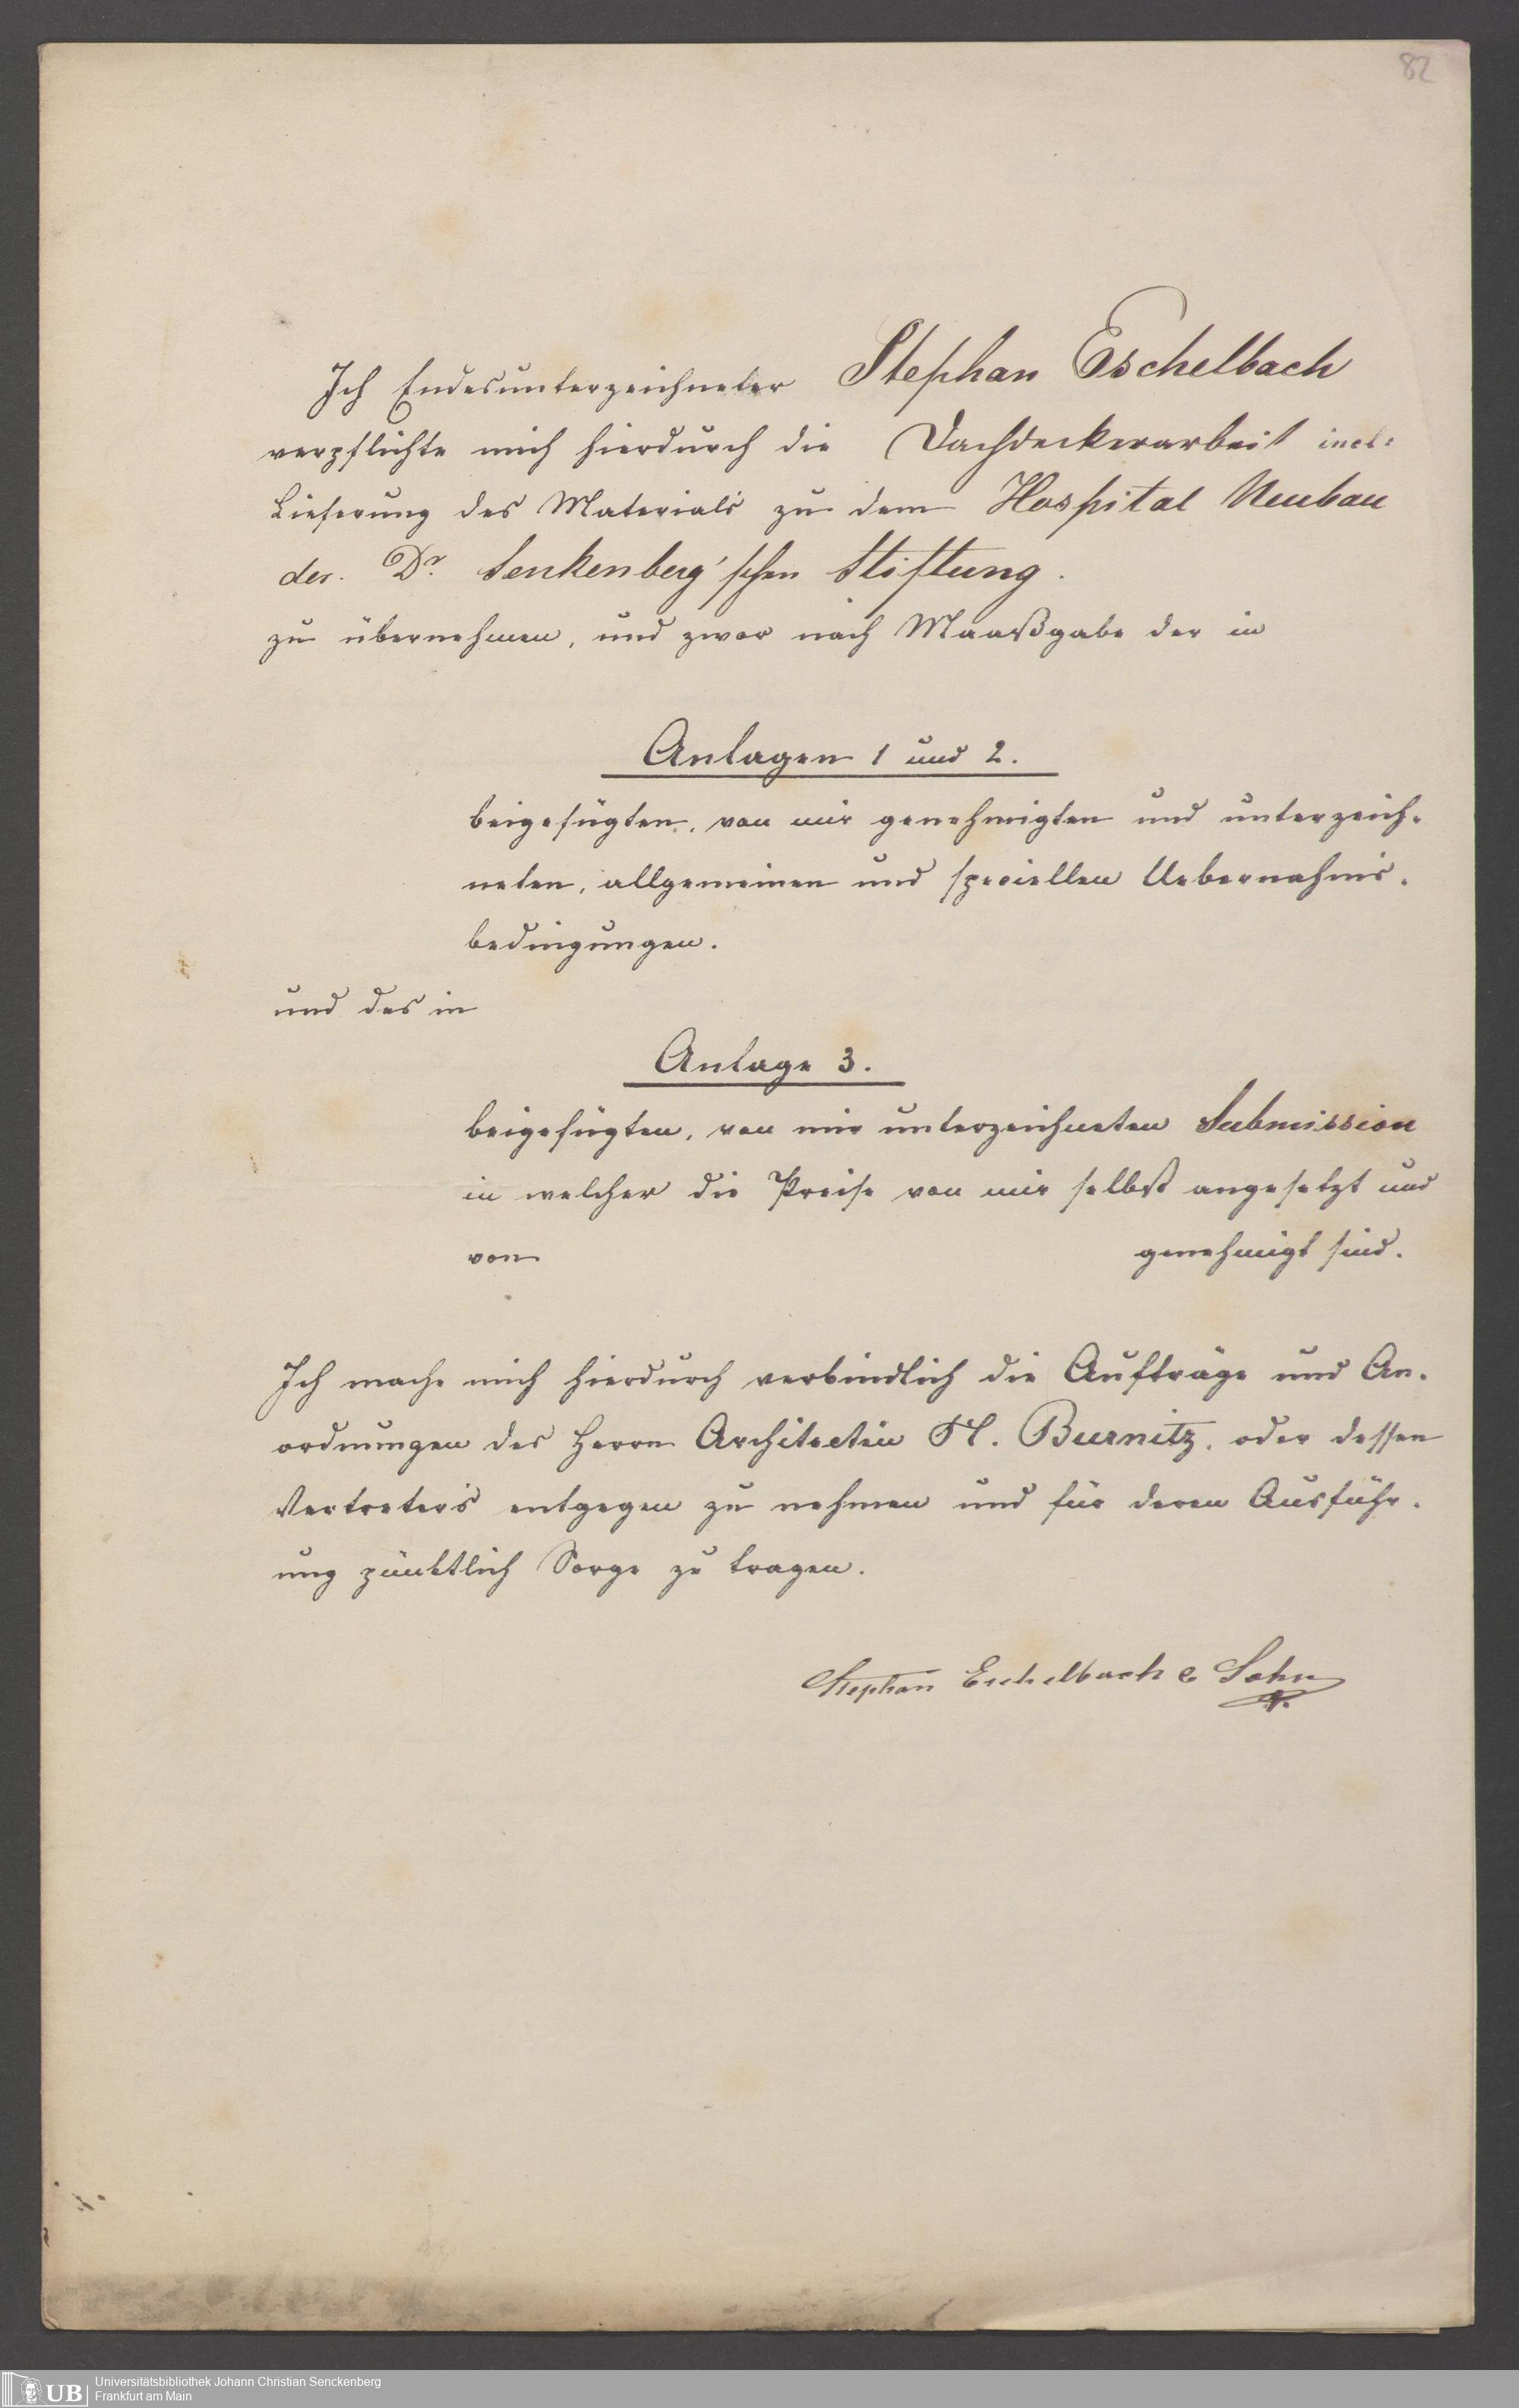 82
Ich Endesunterzeichneter Stephan Eschelbach
verpflichte mich hierdurch die Dachdeckerarbeit incl:
Lieferung des Materials zu dem Hospital Neubau
der. Dr. Senkenberg'schen Stiftung.
zu übernehmen, und zwar nach Maaßgabe der in
Anlagen 1 und 2.
beigefügten, von mir genehmigten und unterzeich-
neten, allgemeinen und speciellen Uebernahms-
bedingungen.
und des in
Anlage 3.
beigefügten, von mir unterzeichneten Submission
in welcher die Preise von mir selbst angesetzt und
von genehmigt sind.
Ich mache mich hierdurch verbindlich die Aufträge und An-
ordnungen des Herrn Architecten Burnitz, oder dessen
Vertreters entgegen zu nehmen und für deren Ausführ-
ung pünktlich Sorge zu tragen.
Stephan Eschelbach & Sohn
UB
Universitätsbibliothek Johann Christian Senckenberg
Frankfurt am Main